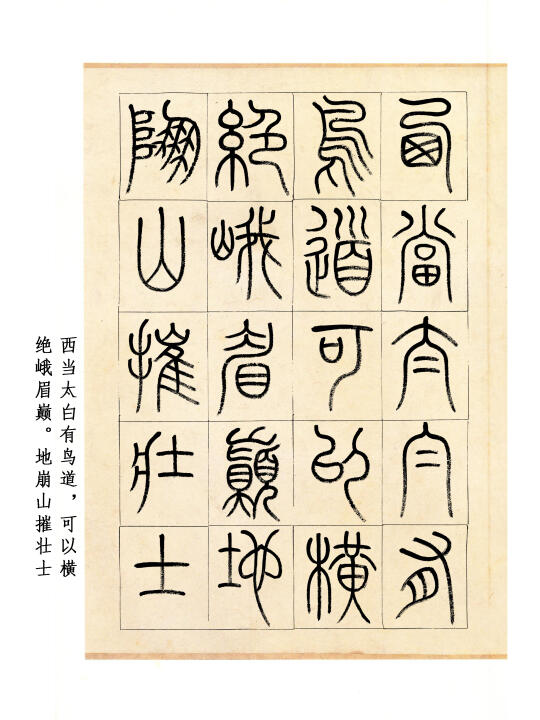 西當太白有
鳥道可以橫
絕峨眉巔地
崩山摧壯士
西当太白有鸟道，可以横
绝峨眉巅。地崩山摧壮士